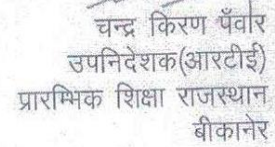 चन्द्र किरण पँवार
उपनिदेशक(आरटीई)
प्रारम्भिक शिक्षा राजस्थान
बीकानेर